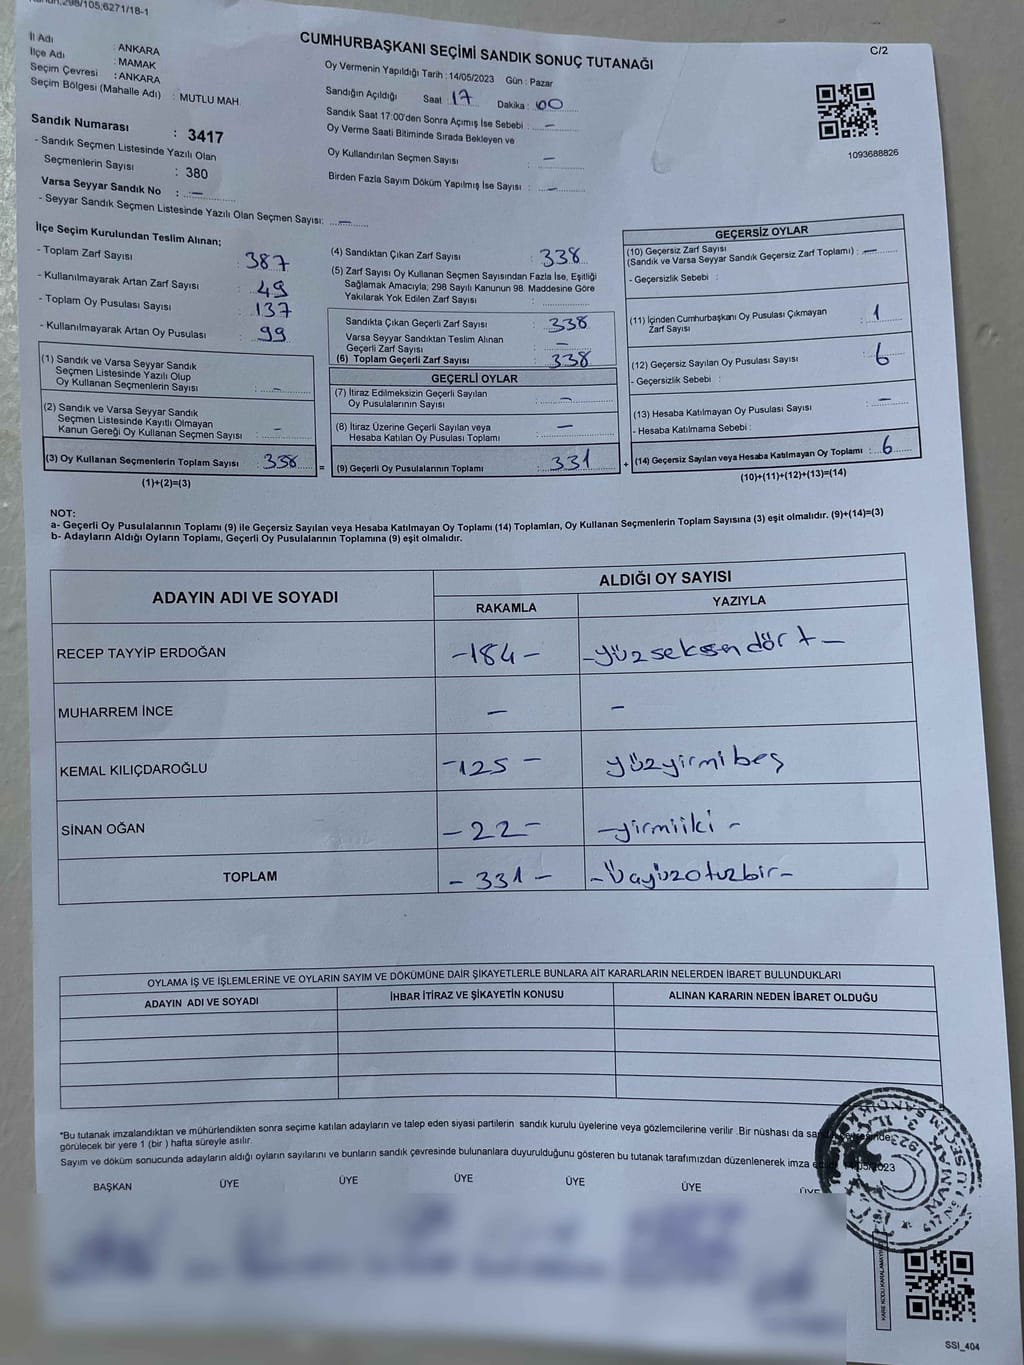 298/105;6271/18-1
CUMHURBAŞKANI SEÇİMİ SANDIK SONUÇ TUTANAĞI
C/2
İl Adı : ANKARA
İlçe Adı : MAMAK
Seçim Çevresi : ANKARA
Seçim Bölgesi (Mahalle Adı) : MUTLU MAH.
Sandık Numarası : 3417
- Sandık Seçmen Listesinde Yazılı Olan
Seçmenlerin Sayısı : 380
Varsa Seyyar Sandık No : –
- Seyyar Sandık Seçmen Listesinde Yazılı Olan Seçmen Sayısı: –
Oy Vermenin Yapıldığı Tarih : 14/05/2023 Gün : Pazar
Sandığın Açıldığı Saat : 17 Dakika : 00
Sandık Saat 17:00'den Sonra Açımış İse Sebebi : –
Oy Verme Saati Bitiminde Sırada Bekleyen ve
Oy Kullandırılan Seçmen Sayısı –
Birden Fazla Sayım Döküm Yapılmış İse Sayısı : –
1093688826
İlçe Seçim Kurulundan Teslim Alınan;
- Toplam Zarf Sayısı : 387
- Kullanılmayarak Artan Zarf Sayısı : 49
- Toplam Oy Pusulası Sayısı : 137
- Kullanılmayarak Artan Oy Pusulası : 99
(1) Sandık ve Varsa Seyyar Sandık
Seçmen Listesinde Yazılı Olup
Oy Kullanan Seçmenlerin Sayısı : –
(2) Sandık ve Varsa Seyyar Sandık
Seçmen Listesinde Kayıtlı Olmayan
Kanun Gereği Oy Kullanan Seçmen Sayısı : –
(3) Oy Kullanan Seçmenlerin Toplam Sayısı : 338
(1)+(2)=(3)
=
(4) Sandıktan Çıkan Zarf Sayısı : 338
(5) Zarf Sayısı Oy Kullanan Seçmen Sayısından Fazla İse, Eşitliği
Sağlamak Amacıyla; 298 Sayılı Kanunun 98. Maddesine Göre
Yakılarak Yok Edilen Zarf Sayısı :
Sandıkta Çıkan Geçerli Zarf Sayısı : 338
Varsa Seyyar Sandıktan Teslim Alınan
Geçerli Zarf Sayısı : –
(6) Toplam Geçerli Zarf Sayısı : 338
GEÇERLİ OYLAR
(7) İtiraz Edilmeksizin Geçerli Sayılan
Oy Pusulalarının Sayısı : –
(8) İtiraz Üzerine Geçerli Sayılan veya
Hesaba Katılan Oy Pusulası Toplamı : –
(9) Geçerli Oy Pusulalarının Toplamı : 331
+
GEÇERSİZ OYLAR
(10) Geçersiz Zarf Sayısı
(Sandık ve Varsa Seyyar Sandık Geçersiz Zarf Toplamı) : –
- Geçersizlik Sebebi :
(11) İçinden Cumhurbaşkanı Oy Pusulası Çıkmayan
Zarf Sayısı : 1
(12) Geçersiz Sayılan Oy Pusulası Sayısı : 6
- Geçersizlik Sebebi :
(13) Hesaba Katılmayan Oy Pusulası Sayısı : –
- Hesaba Katılmama Sebebi :
(14) Geçersiz Sayılan veya Hesaba Katılmayan Oy Toplamı : 6
(10)+(11)+(12)+(13)=(14)
NOT:
a- Geçerli Oy Pusulalarının Toplamı (9) ile Geçersiz Sayılan veya Hesaba Katılmayan Oy Toplamı (14) Toplamları, Oy Kullanan Seçmenlerin Toplam Sayısına (3) eşit olmalıdır. (9)+(14)=(3)
b- Adayların Aldığı Oyların Toplamı, Geçerli Oy Pusulalarının Toplamına (9) eşit olmalıdır.
ADAYIN ADI VE SOYADI
ALDIĞI OY SAYISI
RAKAMLA YAZIYLA
RECEP TAYYİP ERDOĞAN -184- -yüzseksendört-
MUHARREM İNCE – –
KEMAL KILIÇDAROĞLU -125- yüzyirmibeş
SİNAN OĞAN -22- -yirmiiki-
TOPLAM -331- -Üçyüzotuzbir-
OYLAMA İŞ VE İŞLEMLERİNE VE OYLARIN SAYIM VE DÖKÜMÜNE DAİR ŞİKAYETLERLE BUNLARA AİT KARARLARIN NELERDEN İBARET BULUNDUKLARI
ADAYIN ADI VE SOYADI İHBAR İTİRAZ VE ŞİKAYETİN KONUSU ALINAN KARARIN NEDEN İBARET OLDUĞU
*Bu tutanak imzalandıktan ve mühürlendikten sonra seçime katılan adayların ve talep eden siyasi partilerin sandık kurulu üyelerine veya gözlemcilerine verilir .Bir nüshası da
görülecek bir yere 1 (bir ) hafta süreyle asılır.
Sayım ve döküm sonucunda adayların aldığı oyların sayılarını ve bunların sandık çevresinde bulunanlara duyurulduğunu gösteren bu tutanak tarafımızdan düzenlenerek imza
BAŞKAN ÜYE ÜYE ÜYE ÜYE ÜYE ÜYE
MAMAK 3. İLÇE
1923
SSI_404